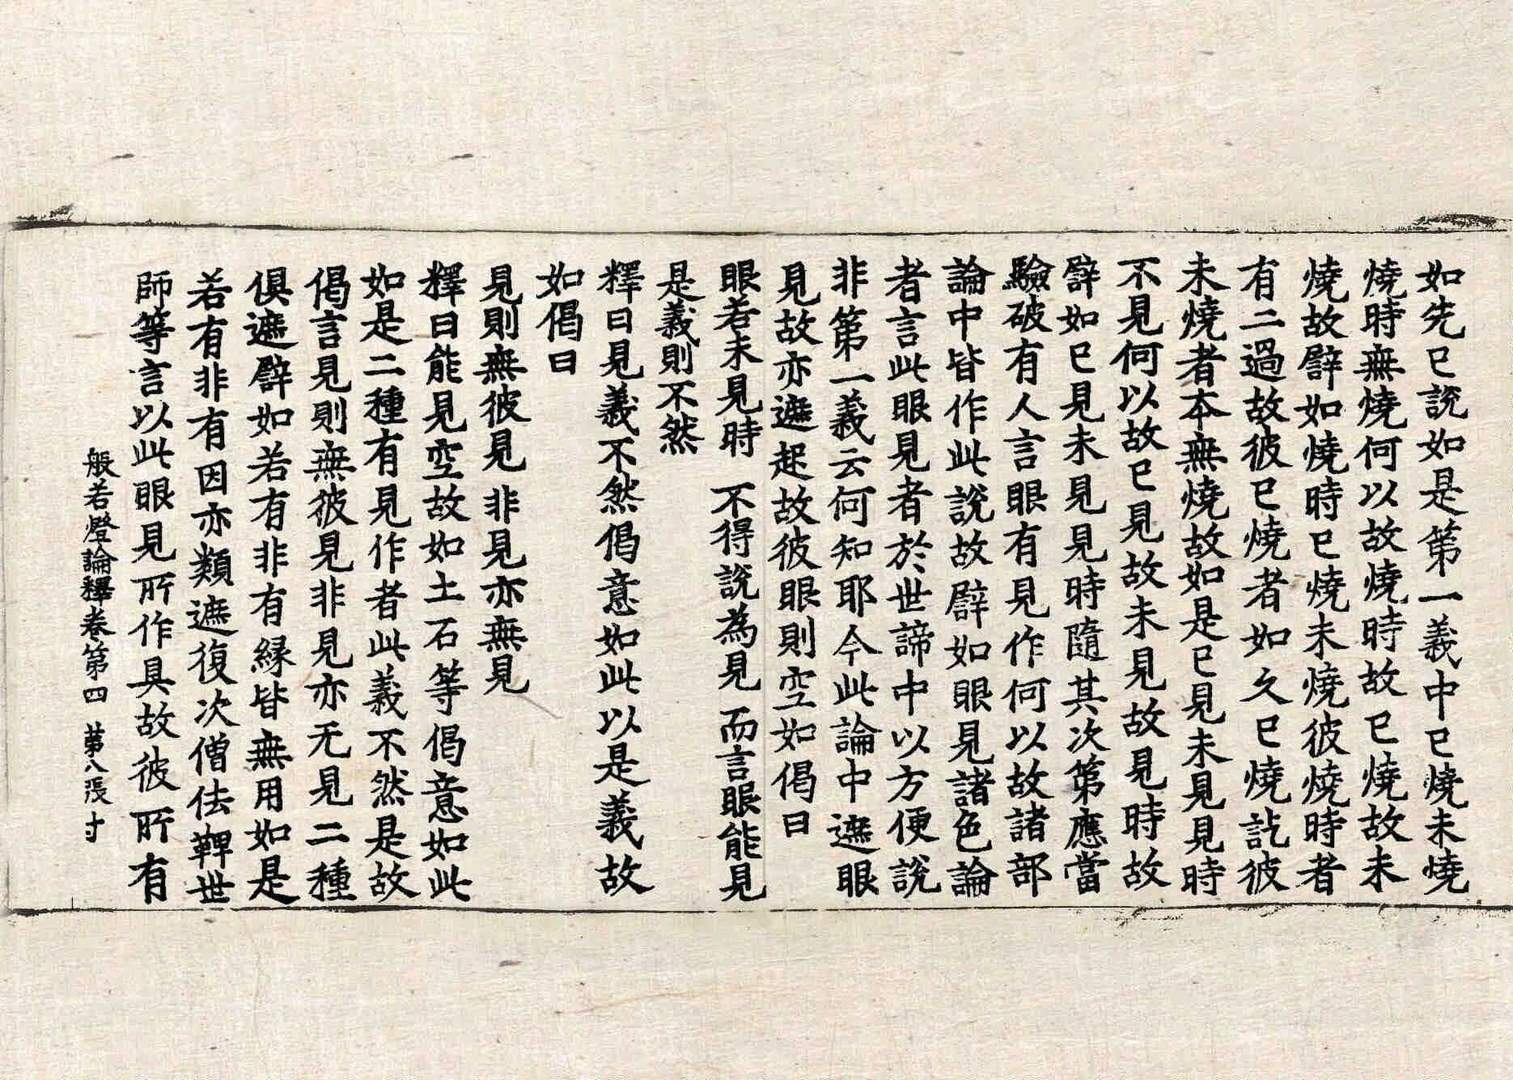 如先已說如是第一義中已燒未燒
燒時無燒何以故燒時故已燒故未
燒故譬如燒時已燒未燒彼燒時者
有二過故彼已燒者如久已燒訖彼
未燒者本無燒故如是已見未見見時
不見何以故已見故未見故見時故
譬如已見未見見時隨其次第應當
驗破有人言眼有見作何以故諸部
論中皆作此說故譬如眼見諸色論
者言此眼見者於世諦中以方便說
非第一義云何知耶今此論中遮眼
見故亦遮起故彼眼則空如偈曰
眼若未見時 不得說為見 而言眼能見
是義則不然
釋曰見義不然偈意如此以是義故
如偈曰
見則無彼見 非見亦無見
釋曰能見空故如土石等偈意如此
如是二種有見作者此義不然是故
偈言見則無彼見非見亦无見二種
俱遮譬如若有非有緣皆無用如是
若有非有因亦類遮復次僧佉鞞世
師等言以此眼見所作具故彼所有
般若燈論釋卷第四 第八張 寸